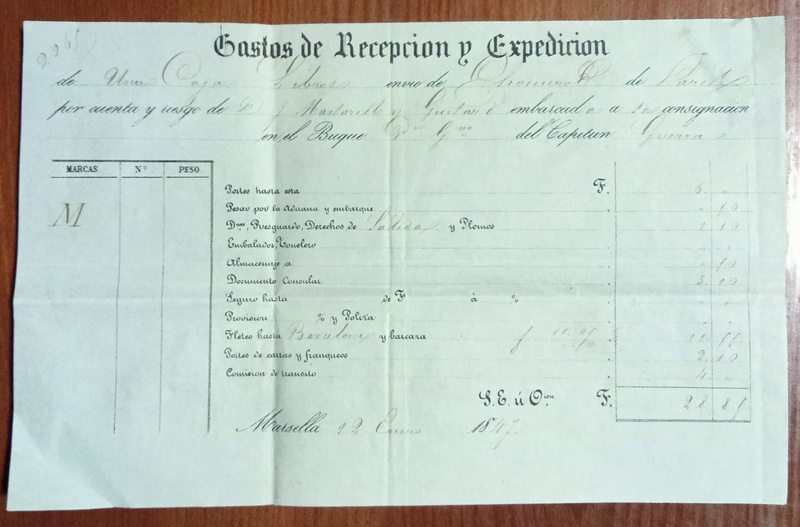 Gastos de Recepcion y Expedicion
de Una Caja Libros envio de de Paris
por cuenta y riesgo de D J Martorell y embarcada a su consignacion
en el Buque del Capitan Guerra
MARCAS Nº PESO
M
Portes hasta esta F.
Pesar por la Aduana y embarque
Dros, Resguardo, Derechos de Salida y Plomos
Embalador, Tonelero
Almacenaje a 10
Documento Consular 3 10
Seguro hasta de F á %
Provision % y Poliza
Fletes hasta Barcelona y barcara
Portes de cartas y franqueos 2 10
Comision de transito 4
S. E. ú On. F. 28 85
Marsella 12 Enero 1847